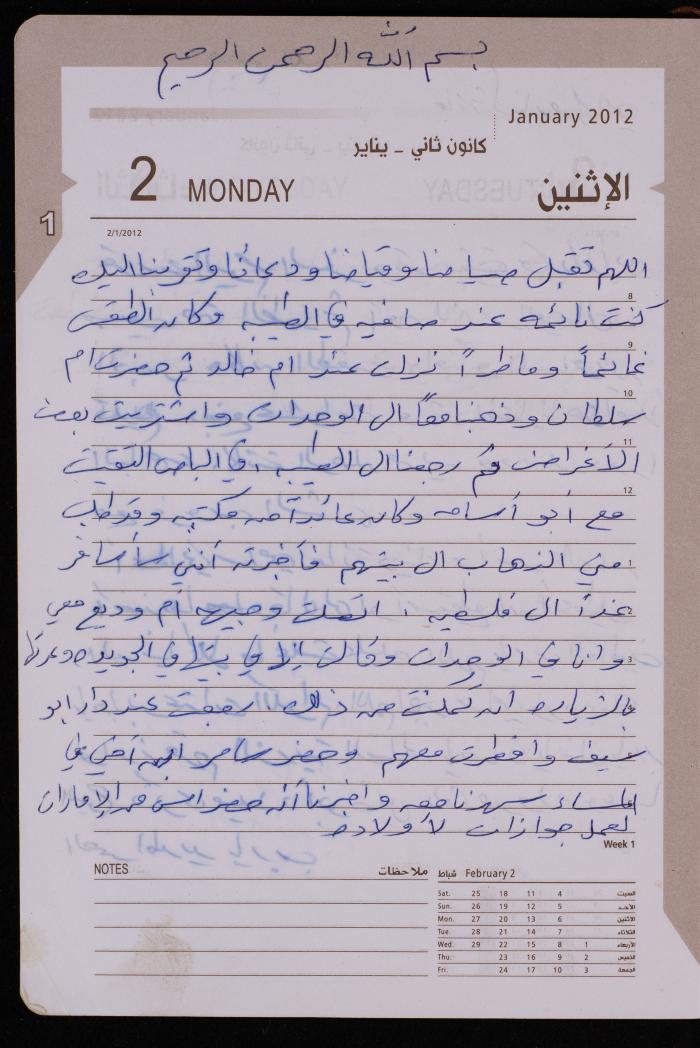 بسم الله الرحمن الرحيم
January 2012
كانون ثاني - يناير
2 MONDAY الإثنين
1
2/1/2012
اللهم تقبل صيامنا وقيامنا ودعائنا وتقربنا اليك
8
كنت نائمه عند صافيه في الطيبه وكان الطقس
9
غائماً وماطراً نزلت عند ام خالد ثم حضرت ام
10
سلطان وذهبنا معاً الى الوحدات واشتريت بعض
11
الأغراض ثم رجعنا الى الطيبه، في الباص التقيت
12
مع أبو أسامه وكان عائداً من مكتبه وقد طلب
1
مني الذهاب الى بيتهم فأخبرته أنني سأسافر
2
غداً الى فلسطين، اتصلت وجيهه أم وديع معي
3
وانا في الوحدات وقالت إلا في بيتها في الجديده وعدتها
بالزياره ان تمكنت من ذلك رجعت عند دار ابو
سيف وافطرت معهم وحضر سامر ابن أختي في
المساء سهرنا معه واخبرنا أنه حضر امس من الإمارات
لعمل جوازات لأولاده
Week 1
NOTES ملاحظات
شباط February 2
Sat. 25 18 11 4 السبت
Sun. 26 19 12 5 الأحد
Mon. 27 20 13 6 الاثنين
Tue. 28 21 14 7 الثلاثاء
Wed. 29 22 15 8 1 الأربعاء
Thu. 23 16 9 2 الخميس
Fri. 24 17 10 3 الجمعة